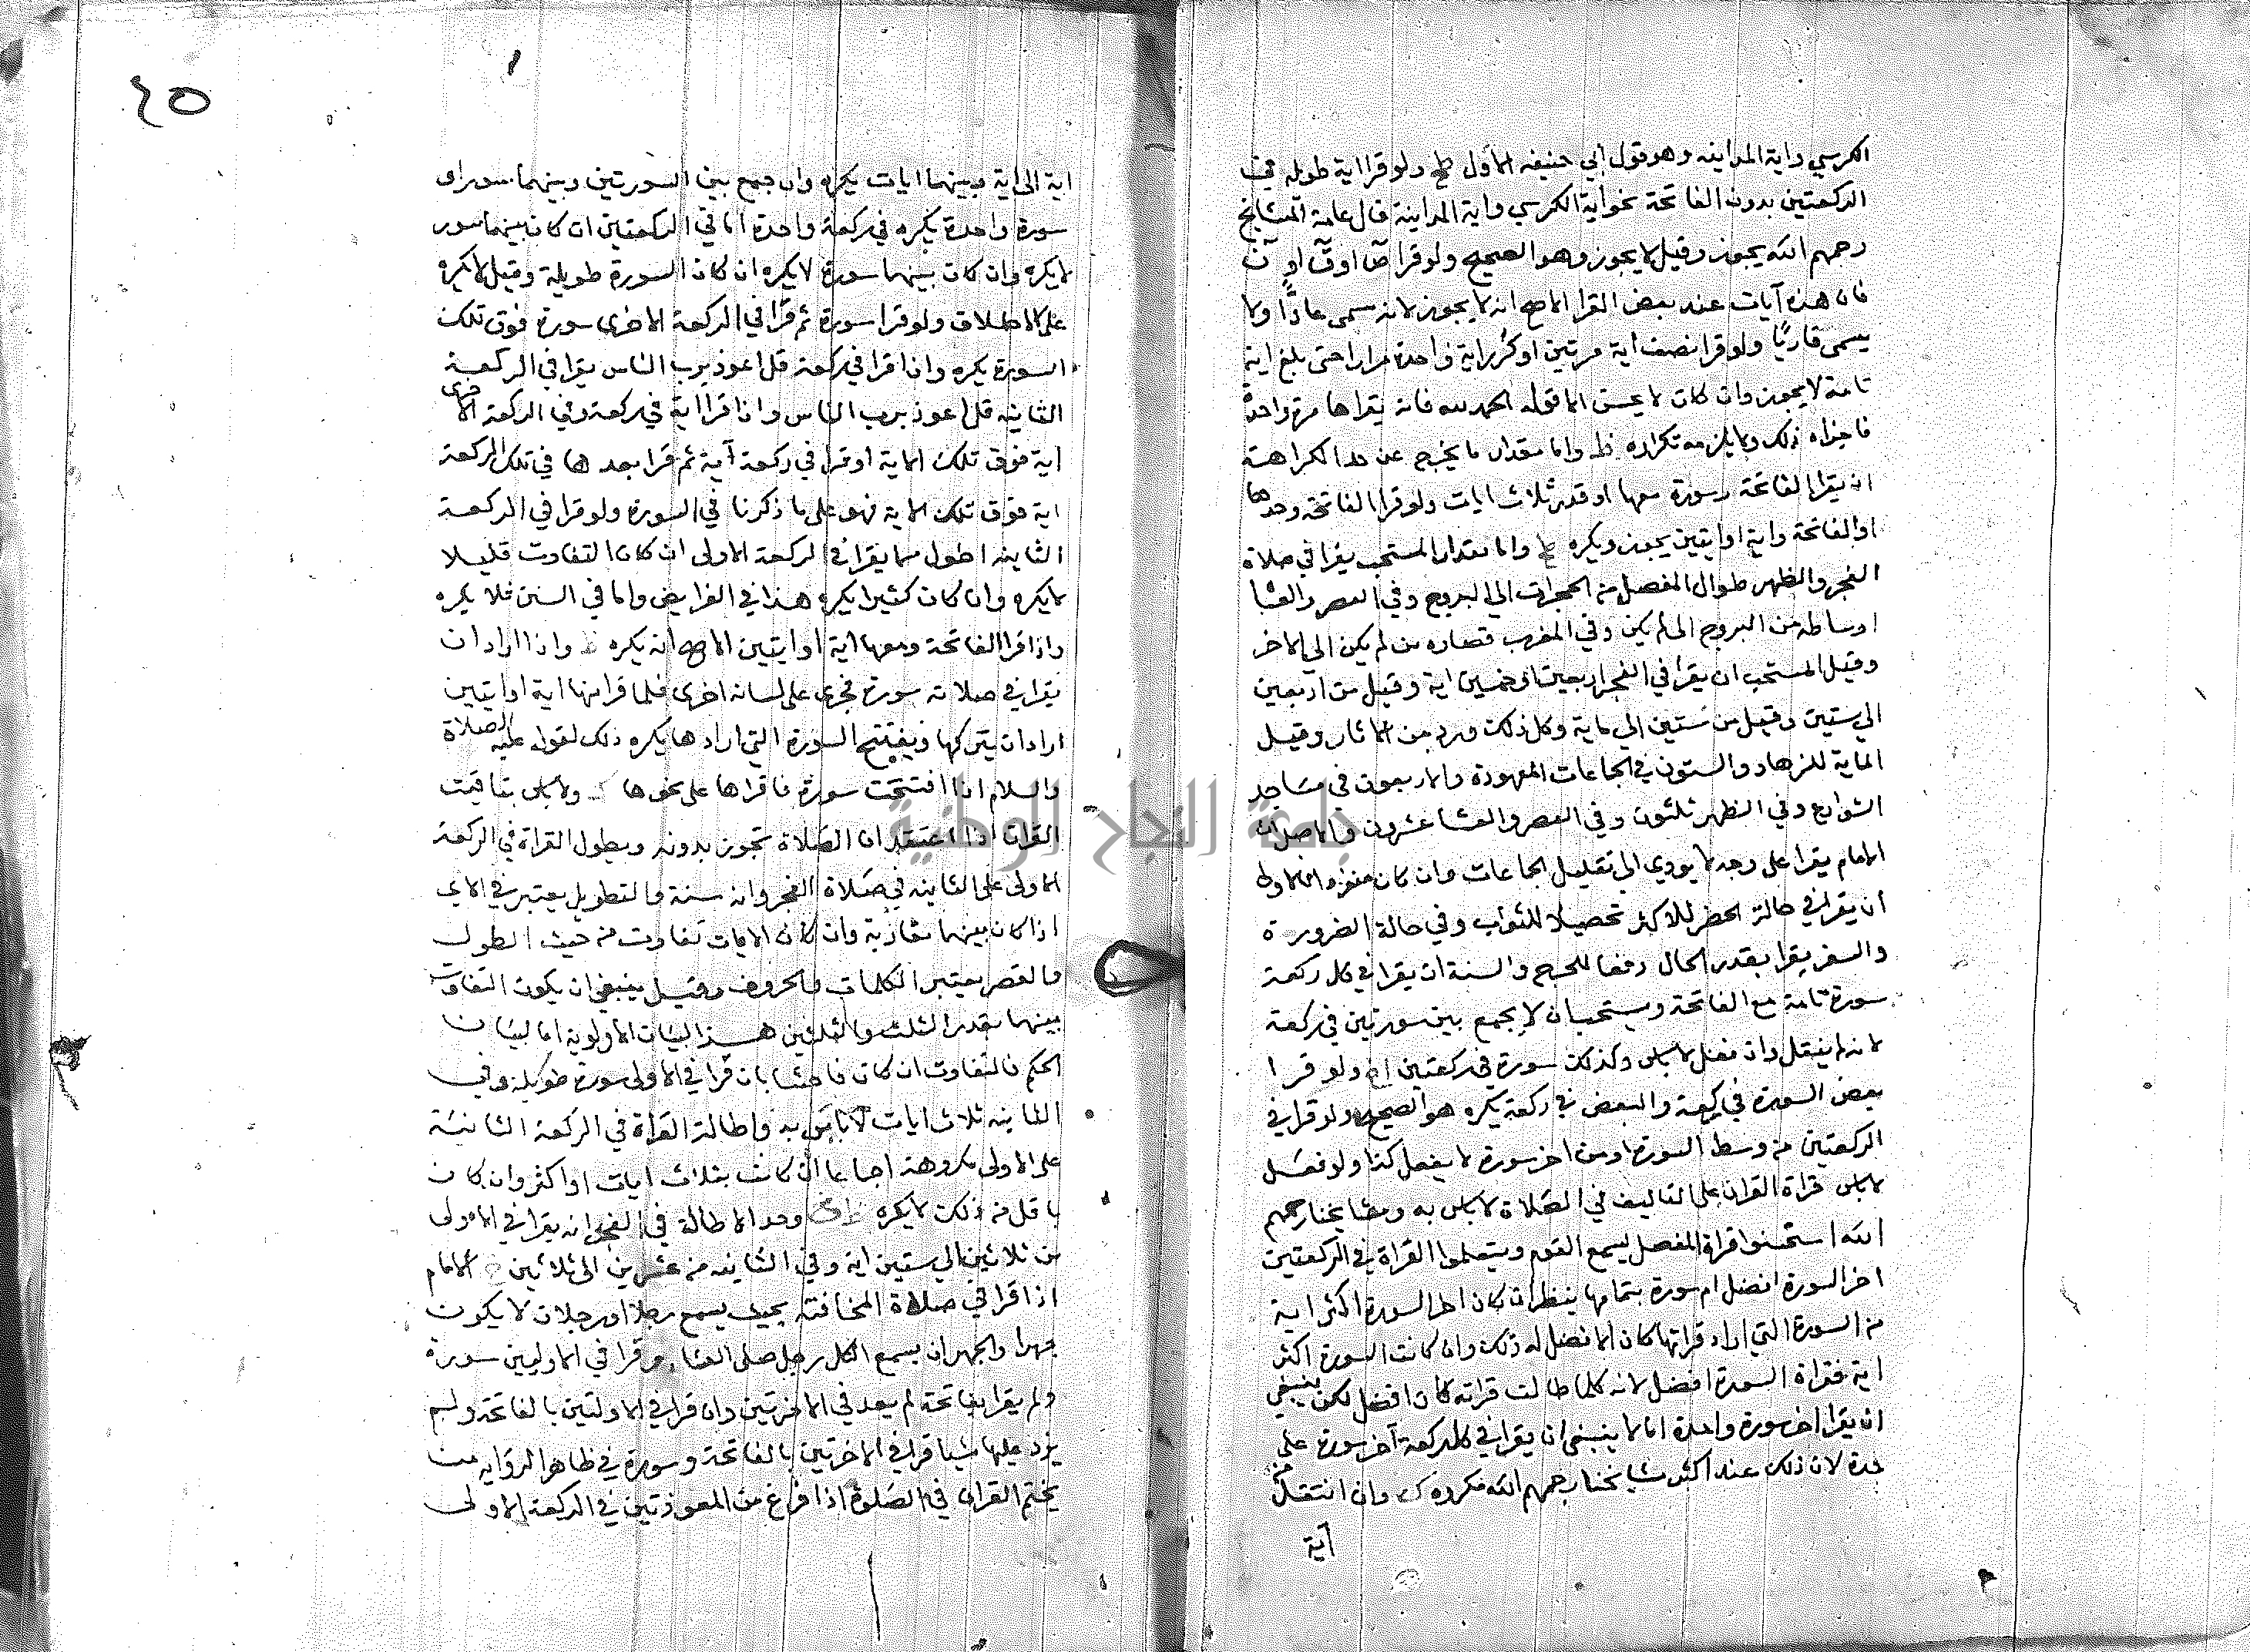 الكرسي واية المداينه وهو قول ابي حنيفه الاول ولو قرا اية طويله في
الركعتين بدون الفاتحة نحو اية الكرسي واية المداينة قال عامة المشايخ
رحمهم الله يجوز وقيل لا يجوز وهو الصحيح ولو قرا ص او ق او ن
فان هذه آيات عند بعض القرا الاصح انه لا يجوز لانه سمى عادًّا ولا
يسمى قاريًا ولو قرا نصف اية مرتين او كرر اية واحدة مرارا حتى بلغ اية
تامة لا يجوز وان كان لا يحسن الا قوله الحمد لله فانه يقراها مرة واحدة
فاجزاه ذلك ولا يلزمه تكراره ظ واما مقدار ما يخرج عن حد الكراهة
ان يقرا الفاتحة وسورة معها او قدر ثلاث ايات ولو قرا الفاتحة وحدها
او الفاتحة واية او ايتين يجوز ويكره واما مقدار المستحب يقرا في صلاة
الفجر والظهر طوال المفصل من الحجرات الي البروج وفي العصر والعشا
اوساطه من البروج الى لم يكن وفي المغرب قصاره من لم يكن الي الاخر
وقيل المستحب ان يقرا في الفجر اربعين او خمسين اية وقيل من اربعين
الي ستين وقيل من ستين الي ماية وكل ذلك ورد من الاثار وقيل
الماية للزهاد والستون في الجماعات المعهودة والاربعون في مساجد
الشوارع وفي الظهر ثلثون وفي العصر والعشا عشرون والاصل ان
الامام يقرا على وجه لا يودي الي تقليل الجماعات وان كان منفردا فالاولى
ان يقرا في حالة الحضر للاكثر تحصيلا للثواب وفي حالة الضرورة
والسفر يقرا بقدر الحال دفعا للحرج والسنة ان يقرا في كل ركعة
سورة تامة مع الفاتحة ويستحب ان لا يجمع بين سورتين في ركعة
لانه لم ينقل وان فعل لا باس وكذلك سورة في ركعتين ولو قرا
بعض السورة في ركعة والبعض في ركعة يكره هو الصحيح ولو قرا في
الركعتين من وسط السورة او من اخر سورة لا يفعل كذا ولو فعل
لا باس قراة القران على التاليف في الصلاة لا باس به ومشايخنا رحمهم
الله استحسنوا قراة المفصل ليسمع القوم ويتعلموا القراة في الركعتين
اخر السورة افضل ام سورة بتمامها ينظر ان كان اخر السورة اكثر اية
من السورة التي اراد قراتها كان الافضل له ذلك وان كانت السورة اكثر
اية فقراة السورة افضل لانه كلما طالت قراته كان افضل لكن ينبغي
ان يقرا اخر سورة واحدة اما لا ينبغي ان يقرا في كل ركعة آخر سورة على
حدة لان ذلك عند اكثر مشايخنا رحمهم الله مكروه وان انتقل من
آية
٢٥
اية الى اية وبينهما ايات يكره وان جمع بين السورتين وبينهما سور او
سورة واحدة يكره في ركعة واحدة اما في الركعتين ان كان بينهما سور
لا يكره وان كان بينهما سورة لا يكره ان كان السورة طويلة وقيل لا يكره
على الاطلاق ولو قرا سورة ثم قرا في الركعة الاخرى سورة فوق تلك
السورة يكره واذا قرا في ركعة قل اعوذ برب الناس يقرا في الركعة
الثانيه قل اعوذ برب الناس واذا قرا اية في ركعة وفي الركعة الاخرى
اية فوق تلك الاية او قرا في ركعة آية ثم قرا بعدها في تلك الركعة
اية فوق تلك الاية فهو على ما ذكرنا في السورة ولو قرا في الركعة
الثانيه اطول مما يقرا في الركعة الاولى ان كان التفاوت قليلا
لا يكره وان كان كثيرا يكره هذا في الفرايض واما في السنن فلا يكره
واذا قرا الفاتحة ومعها اية او ايتين الاصح انه يكره واذا اراد ان
يقرا في صلاته سورة فجرى على لسانه اخرى فلما قرا منها اية او ايتين
اراد ان يتركها ويفتتح السورة التي ارادها يكره ذلك لقوله عليه الصلاة
والسلام اذا افتتحت سورة فاقراها على نحوها ولا باس بتاقيت
القران اذا اعتقد ان الصلاة تجوز بدونه ويطول القراة في الركعة
الاولى على الثانيه في صلاة الفجر وانه سنة والتطويل يعتبر في الاي
اذا كان بينهما مقاربة وان كان الايات تفاوت من حيث الطول
والقصر يعتبر الكلمات والحروف وقيل ينبغي ان يكون التفاوت
بينهما بقدر الثلث والثلثين هذا لبيان الاولوية اما لبيان
الحكم فالتفاوت ان كان فاحشا بان قرا في الاولى سورة طويلة وفي
الثانيه ثلاث ايات لا باس به واطالة القراة في الركعة الثانية
على الاولى مكروهة اجماعا ان كانت بثلاث ايات او اكثر وان كان
باقل من ذلك لا يكره وحد الاطالة في الفجر انه يقرا في الاولى
من ثلاثين الي ستين اية وفي الثانيه من عشرين الى ثلاثين الامام
اذا قرا في صلاة المخافتة بحيث يسمع رجلا او رجلان لا يكون
جهرا والجهر ان يسمع الكل رجل صلى العشا وقرا في الاوليين سورة
ولم يقرا بفاتحة لم يعد في الاخرتين وان قرا في الاولتين بالفاتحة ولم
يزد عليها شيا قرا في الاخرتين بالفاتحة وسورة في ظاهر الرواية من
يختم القران في الصلوة اذا فرغ من المعوذتين في الركعة الاولى
جامعة النجاح الوطنية